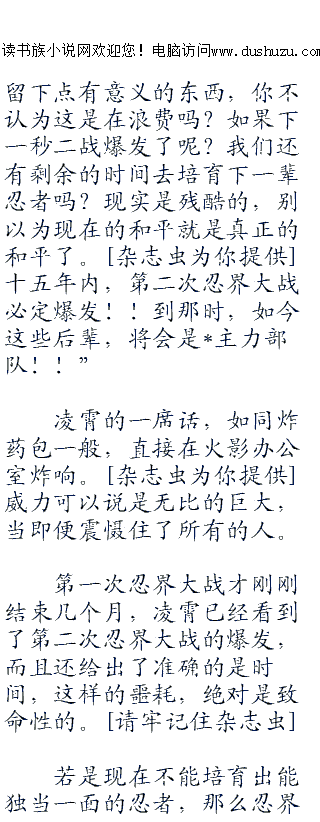 读书族小说网欢迎您！电脑访问www.dushuzu.com
留下点有意义的东西，你不
认为这是在浪费吗？如果下
一秒二战爆发了呢？我们还
有剩余的时间去培育下一辈
忍者吗？现实是残酷的，别
以为现在的和平就是真正的
和平了。[杂志虫为你提供]
十五年内，第二次忍界大战
必定爆发！！到那时，如今
这些后辈，将会是*主力部
队！！”
凌霄的一席话，如同炸
药包一般，直接在火影办公
室炸响。[杂志虫为你提供]
威力可以说是无比的巨大，
当即便震慑住了所有的人。
第一次忍界大战才刚刚
结束几个月，凌霄已经看到
了第二次忍界大战的爆发，
而且还给出了准确的是时
间，这样的噩耗，绝对是致
命性的。[请牢记住杂志虫]
若是现在不能培育出能
独当一面的忍者，那么忍界